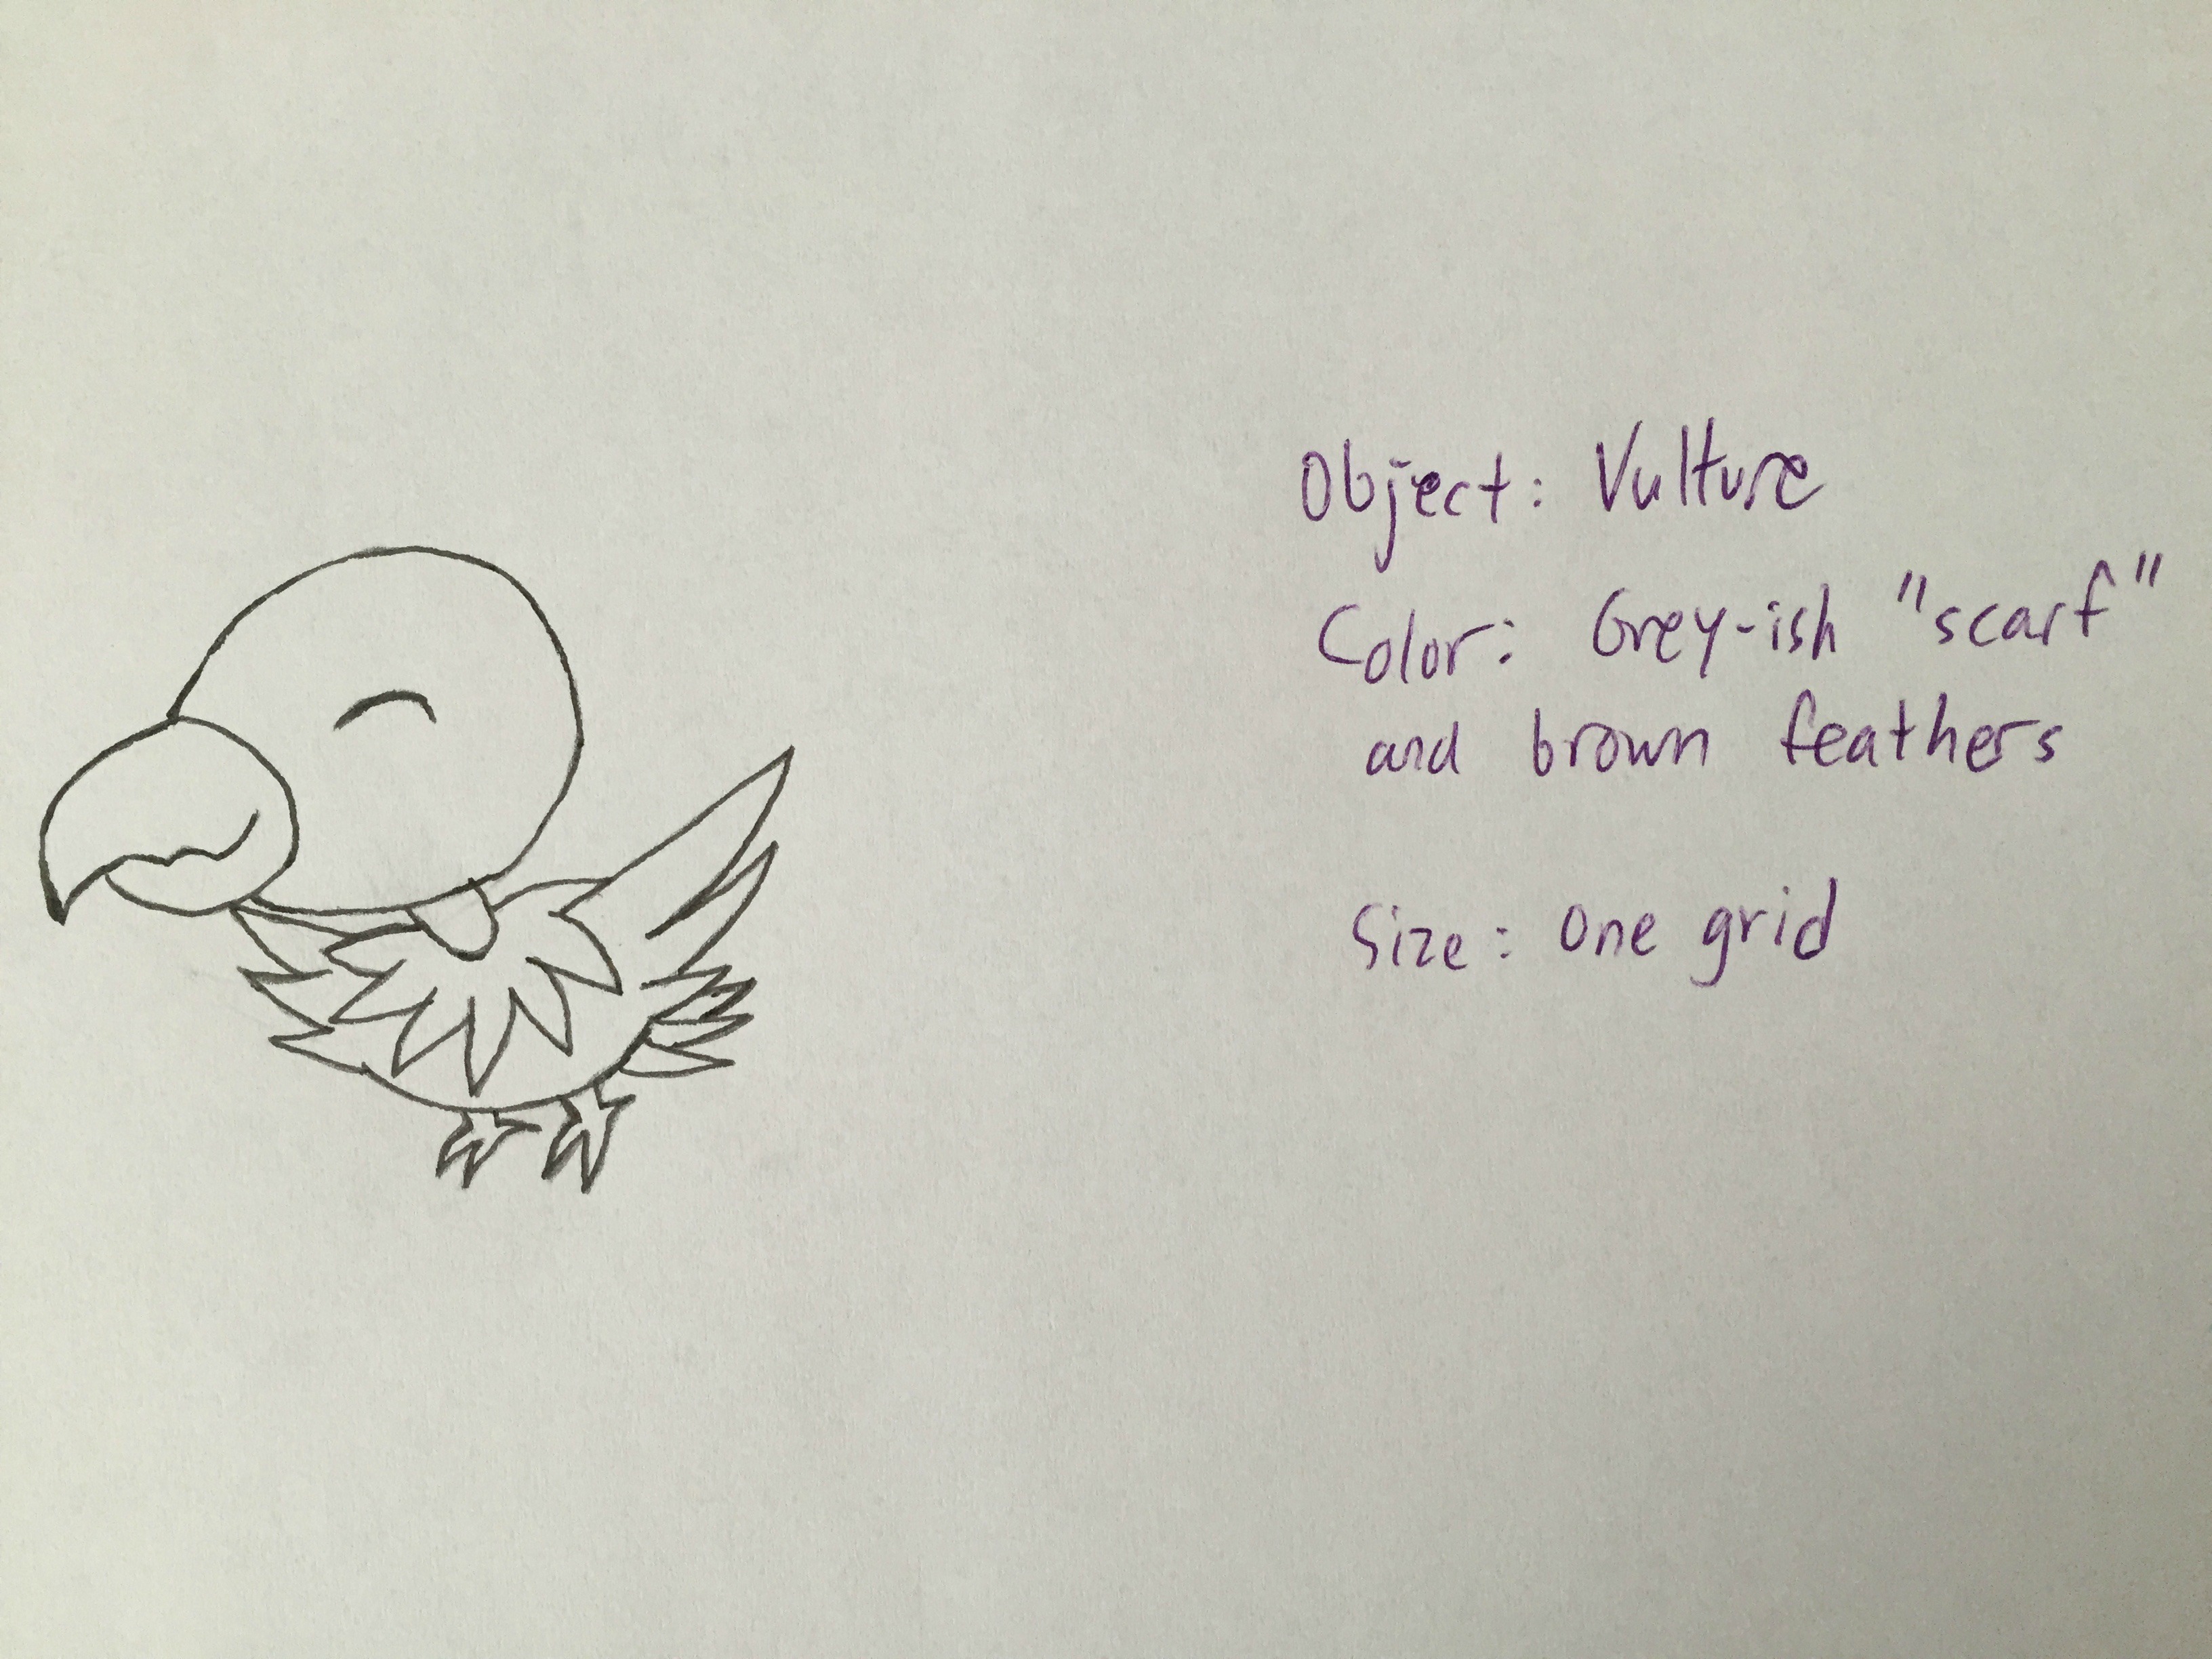 Object: Vulture
Color: Grey-ish "scarf"
and brown feathers
Size: One grid